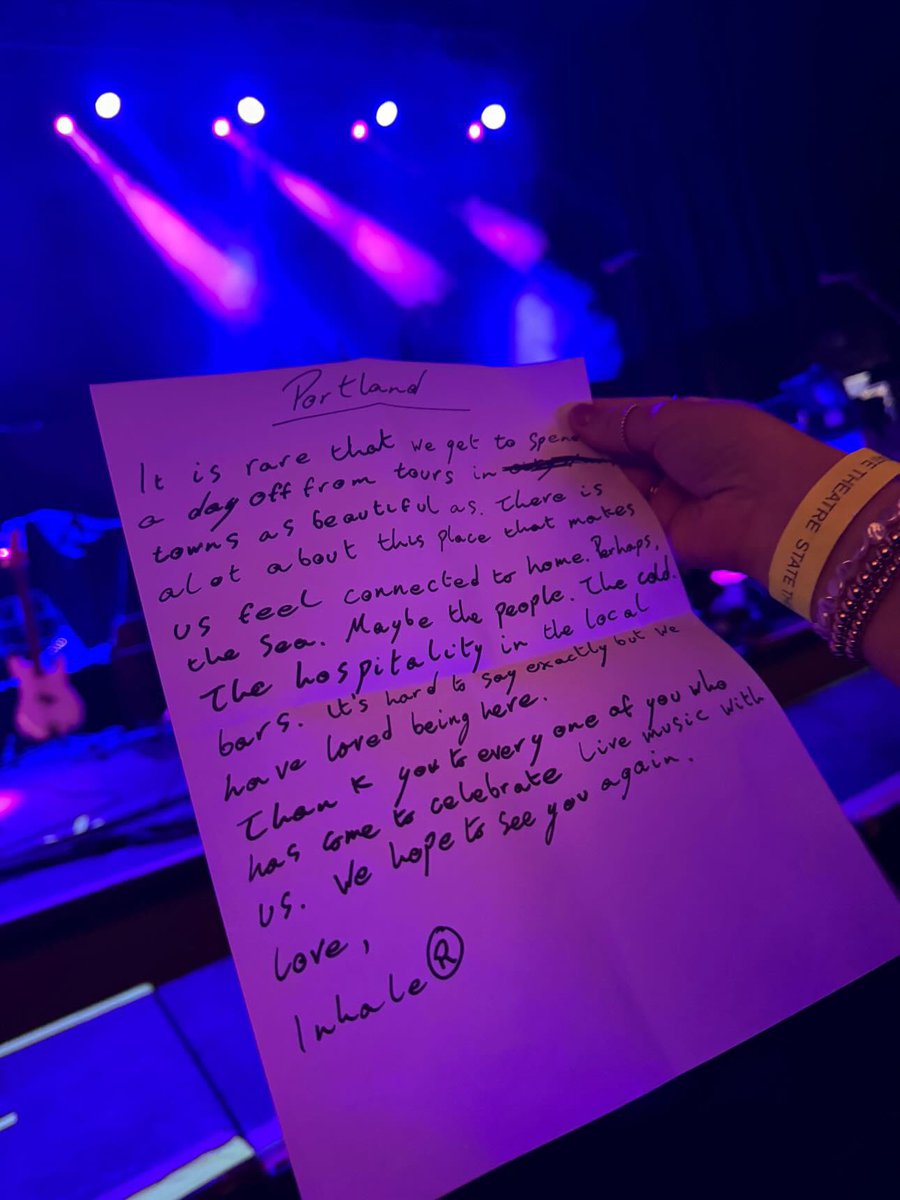 Portland
It is rare that we get to spend
a day off from tours in
towns as beautiful as. There is
alot about this place that makes
us feel connected to home. Perhaps,
the sea. Maybe the people. The cold.
The hospitality in the local
bars. It's hard to say exactly but we
have loved being here.
Thank you to every one of you who
has come to celebrate live music with
us. We hope to see you again.
Love,
Inhale ®
ATE THEATRE STATE TH